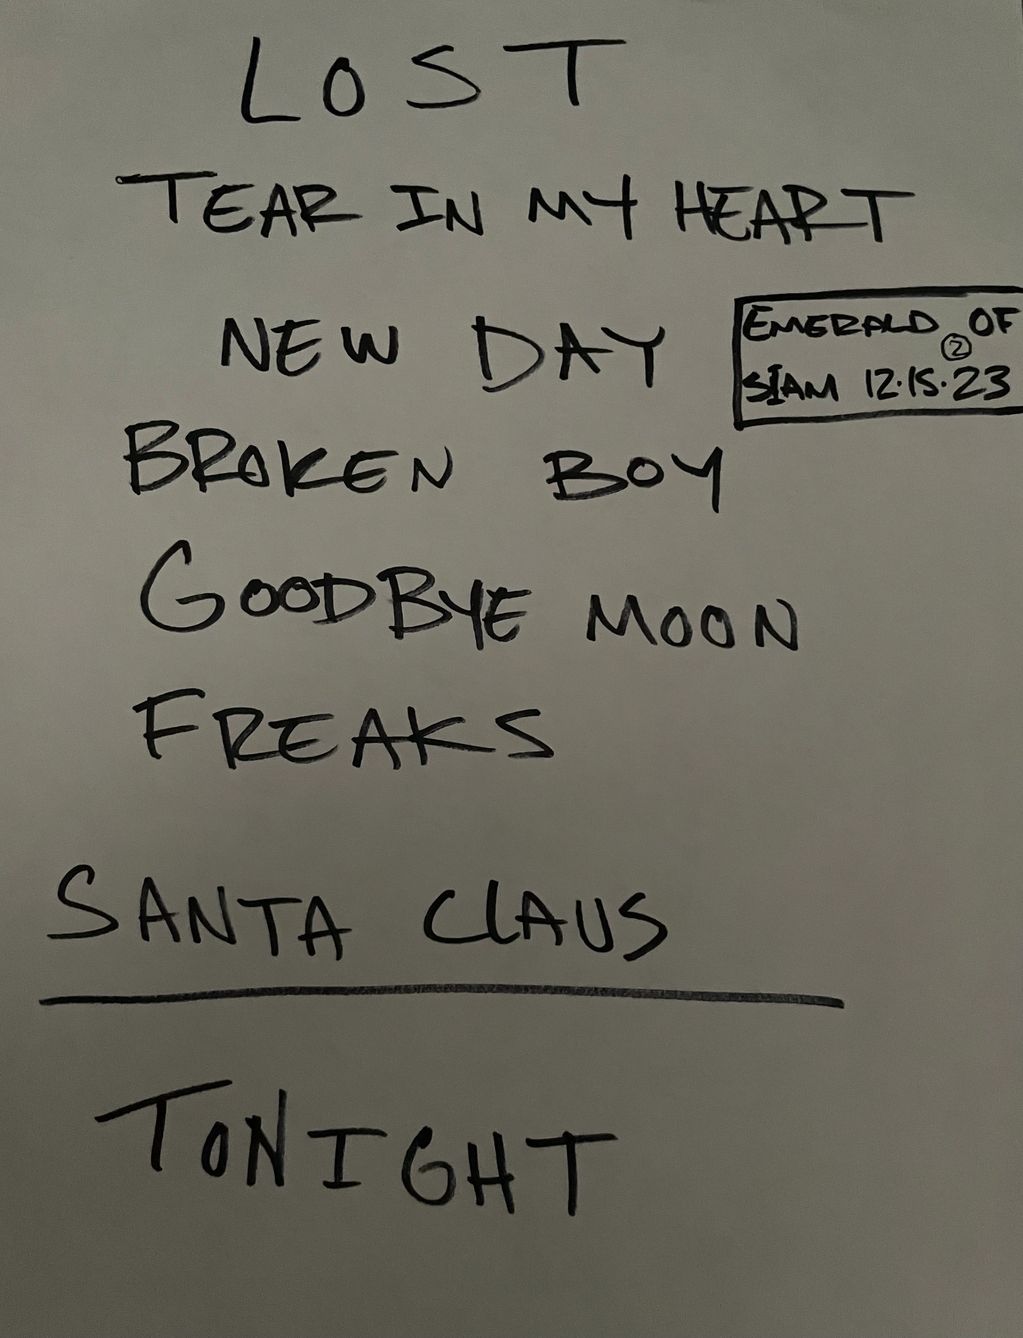 LOST
TEAR IN MY HEART
NEW DAY
EMERALD OF
②
SIAM 12.15.23
BROKEN BOY
GOODBYE MOON
FREAKS
SANTA CLAUS
TONIGHT